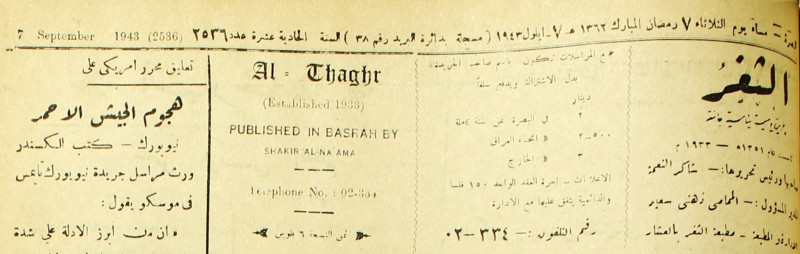 البصرة — مساء يوم الثلاثاء ٧ رمضان المبارك ١٣٦٢ هـ ٧ - ايلول ١٩٤٣ ( مسجلة بدائرة البريد رقم ٣٨ ) السنة الحادية عشرة عدد ٢٥٣٦
7 September 1943 (2536)
الثغر
تأسست عام ١٣٥١ — ١٩٣٣ م
صاحبها ورئيس تحريرها :— شاكر النعمة
المدير المسؤول :— المحامي زهدي سعيد
الادارة والمطبعة — مطبعة الثغر بالعشار
جميع المراسلات تكون باسم صاحب الجريدة
بدل الاشتراك ويدفع سلفاً
دينار
٢ في البصرة عن سنة كاملة
٢-٥٠٠ « انحاء العراق
٣ « الخارج
الاعلانات — اجرة العقد الواحد ١٥٠ فلسا
والدائمية يتفق عليها مع الادارة
رقم التلفون :— ٣٣٤-٠٢
Al - Thaghr
(Established 1933)
PUBLISHED IN BASRAH BY
SHAKIR AL-NA'AMA
Telephone No. : 02-334
ثمن النسخة ٦ فلوس
تعليق محرر امريكي على
هجوم الجيش الاحمر
نيويورك — كتب الكسندر
ورث مراسل جريدة نيويورك تايمس
في موسكو يقول :
« ان من ابرز الادلة على شدة